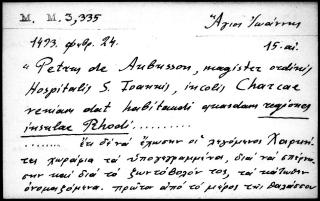 M. M. 3,335
Ἅγιος Ἰωάννης
1493. φεβρ. 24.
15. αἰ.
"Petrus de Aubusson, magister ordinis
Hospitalis S. Ioannis, incolis Charcae
veniam dat habitandi quandam regionem
insulae Rhodi..........
....... ἔτι δὲ νὰ ἔχωσιν οἱ λεγόμενοι Χαρκῆ-
τες χωράφια τὰ ὑπογεγραμμένα, διὰ νὰ σπέρνου-
σιν καὶ διὰ τὸ ζωντόβολόν τος, τὰ κάτωθεν
ὀνομαζόμενα. πρῶτον ἀπὸ τὸ μέρος τῆς θαλάσσου